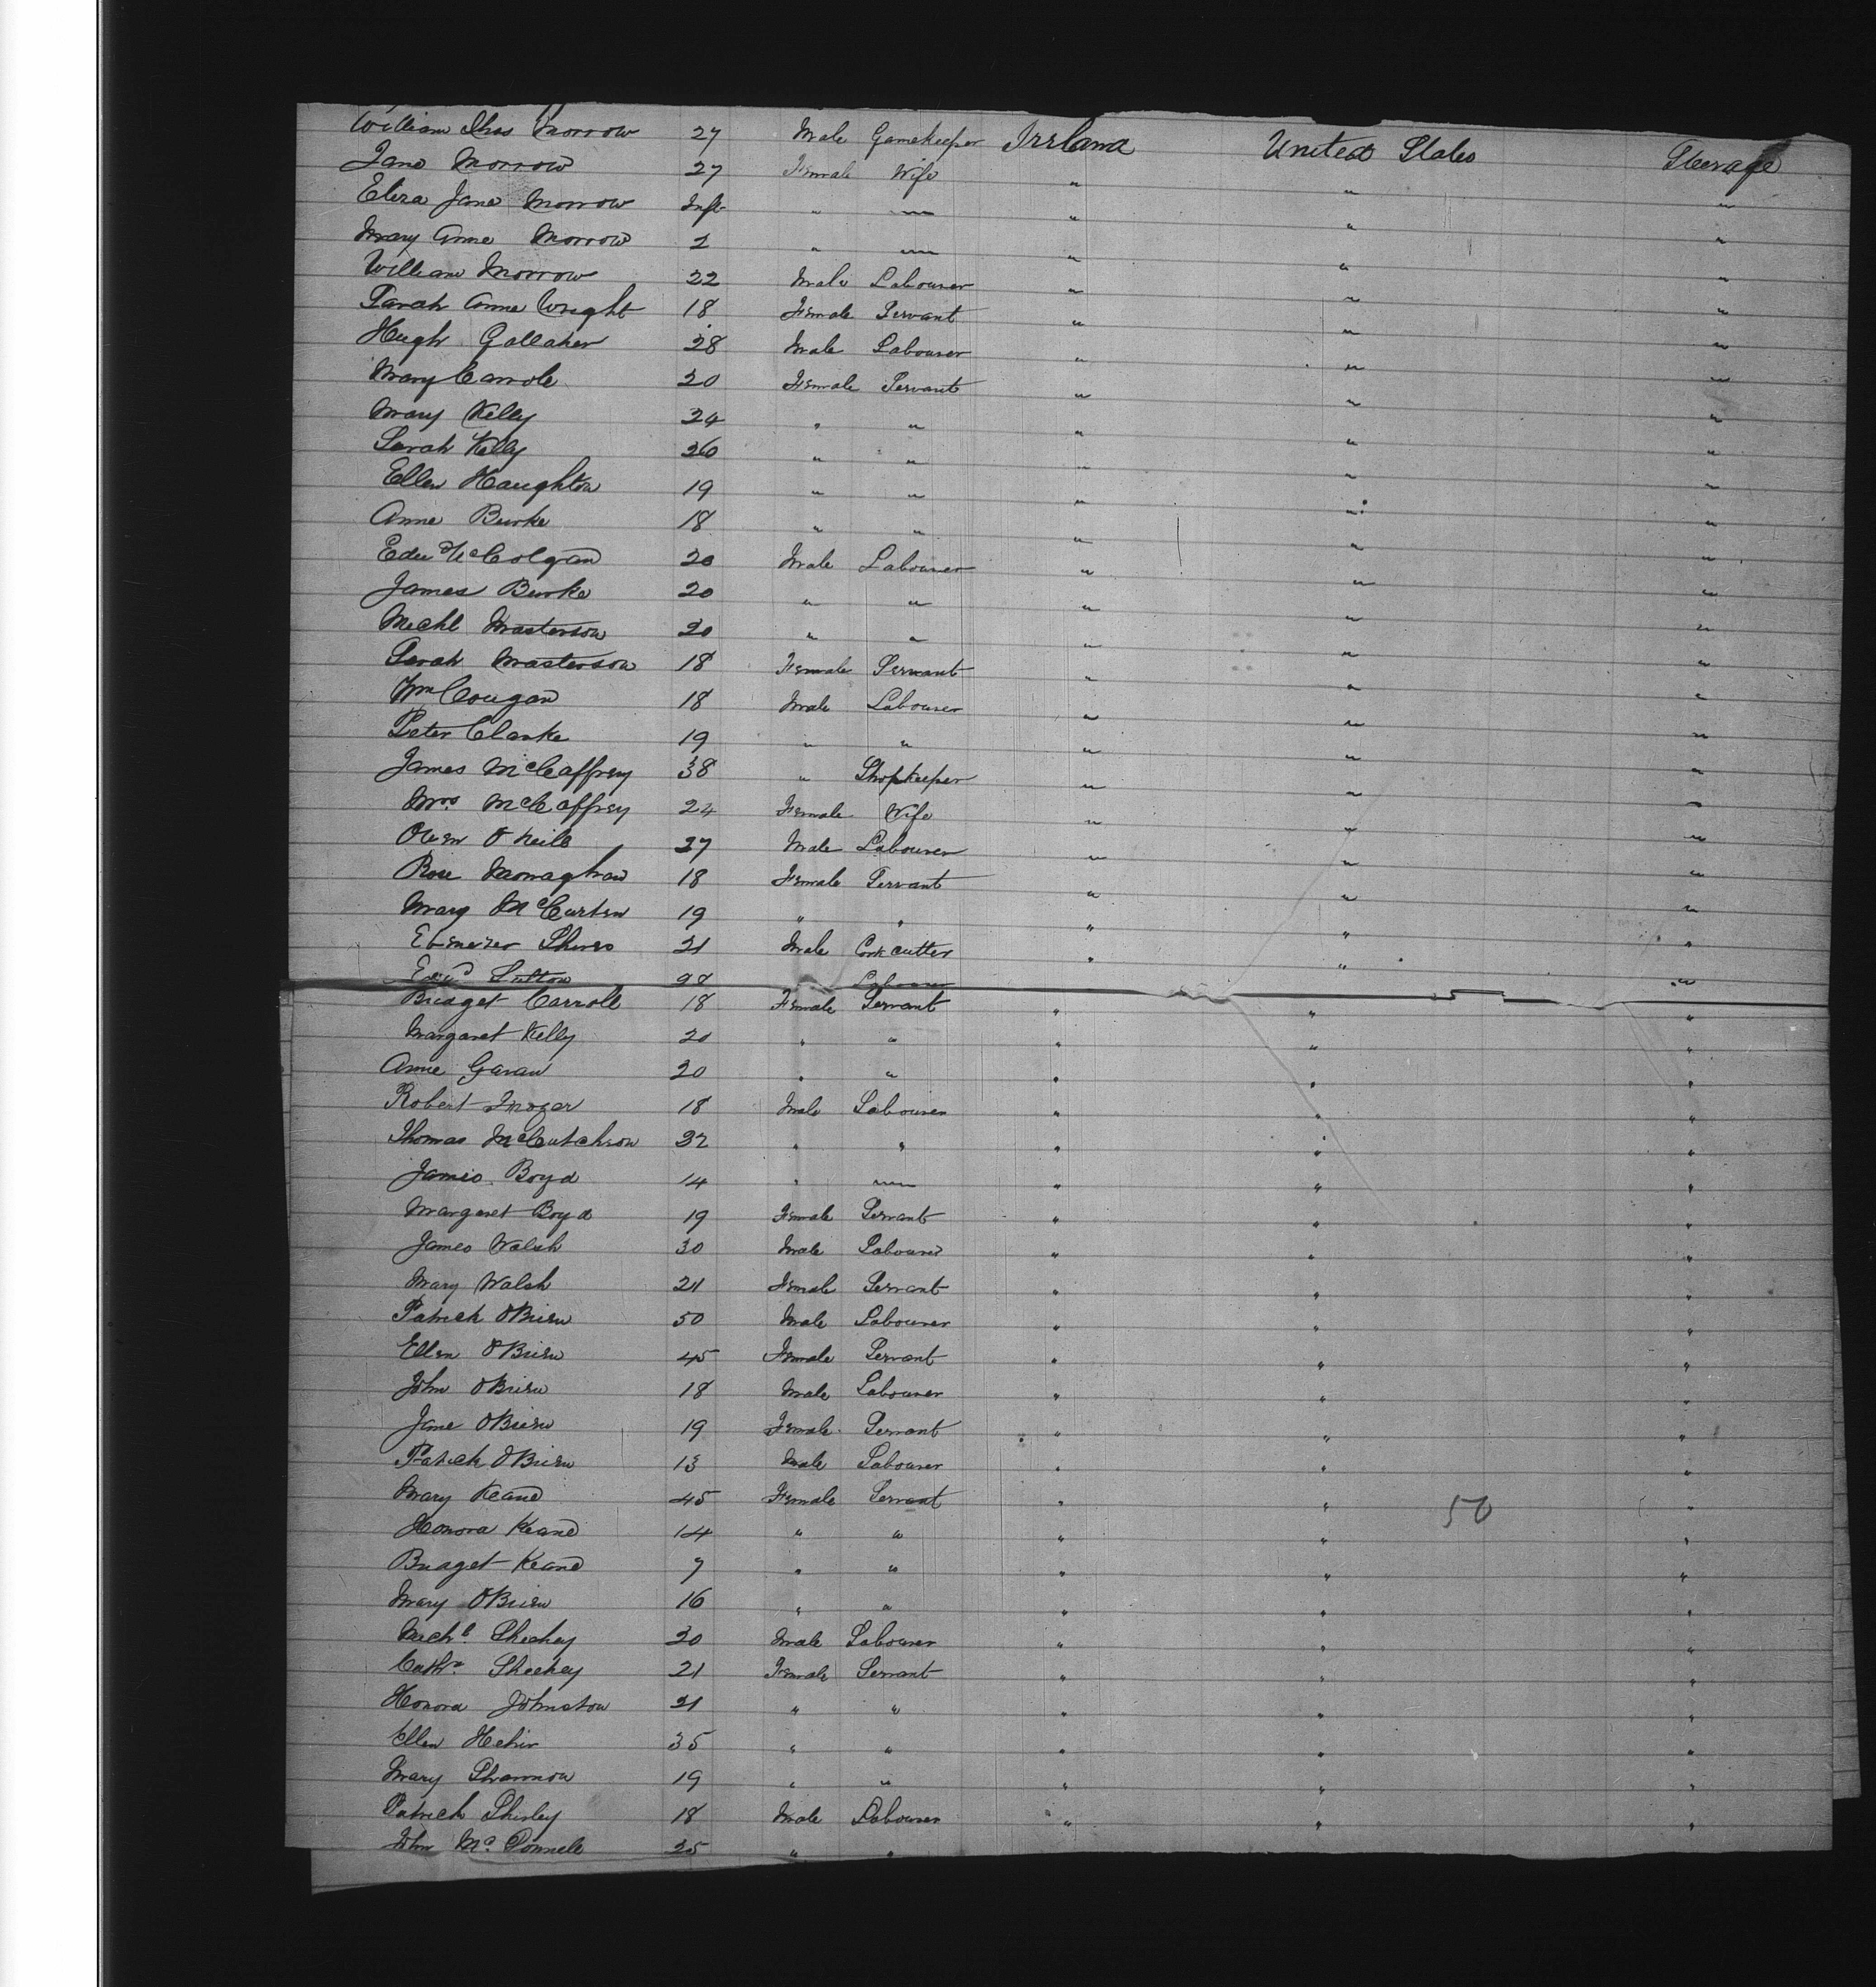 William Thos Morrow 27 Male Gamekeeper Ireland United States Steerage
Jane Morrow 27 Female Wife " " "
Eliza Jane Morrow Inft " — " " "
Mary Anne Morrow 2 " — " " "
William Morrow 22 Male Labourer " " "
Sarah Anne Wright 18 Female Servant " " "
Hugh Gallaher 28 Male Labourer " " "
Mary Carrole 20 Female Servant " " "
Mary Kelly 24 " " " " "
Sarah Kelly 26 " " " " "
Ellen Haughton 19 " " " " "
Anne Burke 18 " " " " "
Edw McColgan 20 Male Labourer " " "
James Burke 20 " " " " "
Michl Masterson 20 " " " " "
Sarah Masterson 18 Female Servant " " "
Wm Cougan 18 Male Labourer " " "
Peter Clarke 19 " " " " "
James McCaffrey 38 " Shopkeeper " " "
Mrs McCaffrey 24 Female Wife " " "
Owen O'Neile 27 Male Labourer " " "
Rose Monaghan 18 Female Servant " " "
Mary McCurten 19 " " " " "
Ebenezer 21 Male Cork cutter " " "
Sutton Labourer "
Bridget Carroll 18 Female Servant " " "
Margaret Kelly 20 " " " " "
Anne Gavan 20 " " " " "
Robert 18 Male Labourer " " "
Thomas McCutcheon 32 " " " " "
James Boyd 14 " — " " "
Margaret Boyd 19 Female Servant " " "
James Walsh 30 Male Labourer " " "
Mary Walsh 21 Female Servant " " "
Patrick OBrien 50 Male Labourer " " "
Ellen OBrien 45 Female Servant " " "
John OBrien 18 Male Labourer " " "
Jane OBrien 19 Female Servant " " "
Patrick OBrien 13 Male Labourer " " "
Mary Keane 45 Female Servant " " 50 "
Honora Keane 14 " " " " "
Bridget Keane 7 " " " " "
Mary OBrien 16 " " " " "
Michl Sheehey 20 Male Labourer " " "
Cathe Sheehey 21 Female Servant " " "
Honora Johnston 21 " " " " "
Ellen Hehir 35 " " " " "
Mary Shannon 19 " " " " "
Patrick Shirley 18 Male Labourer " " "
John McDonnell 25 " "